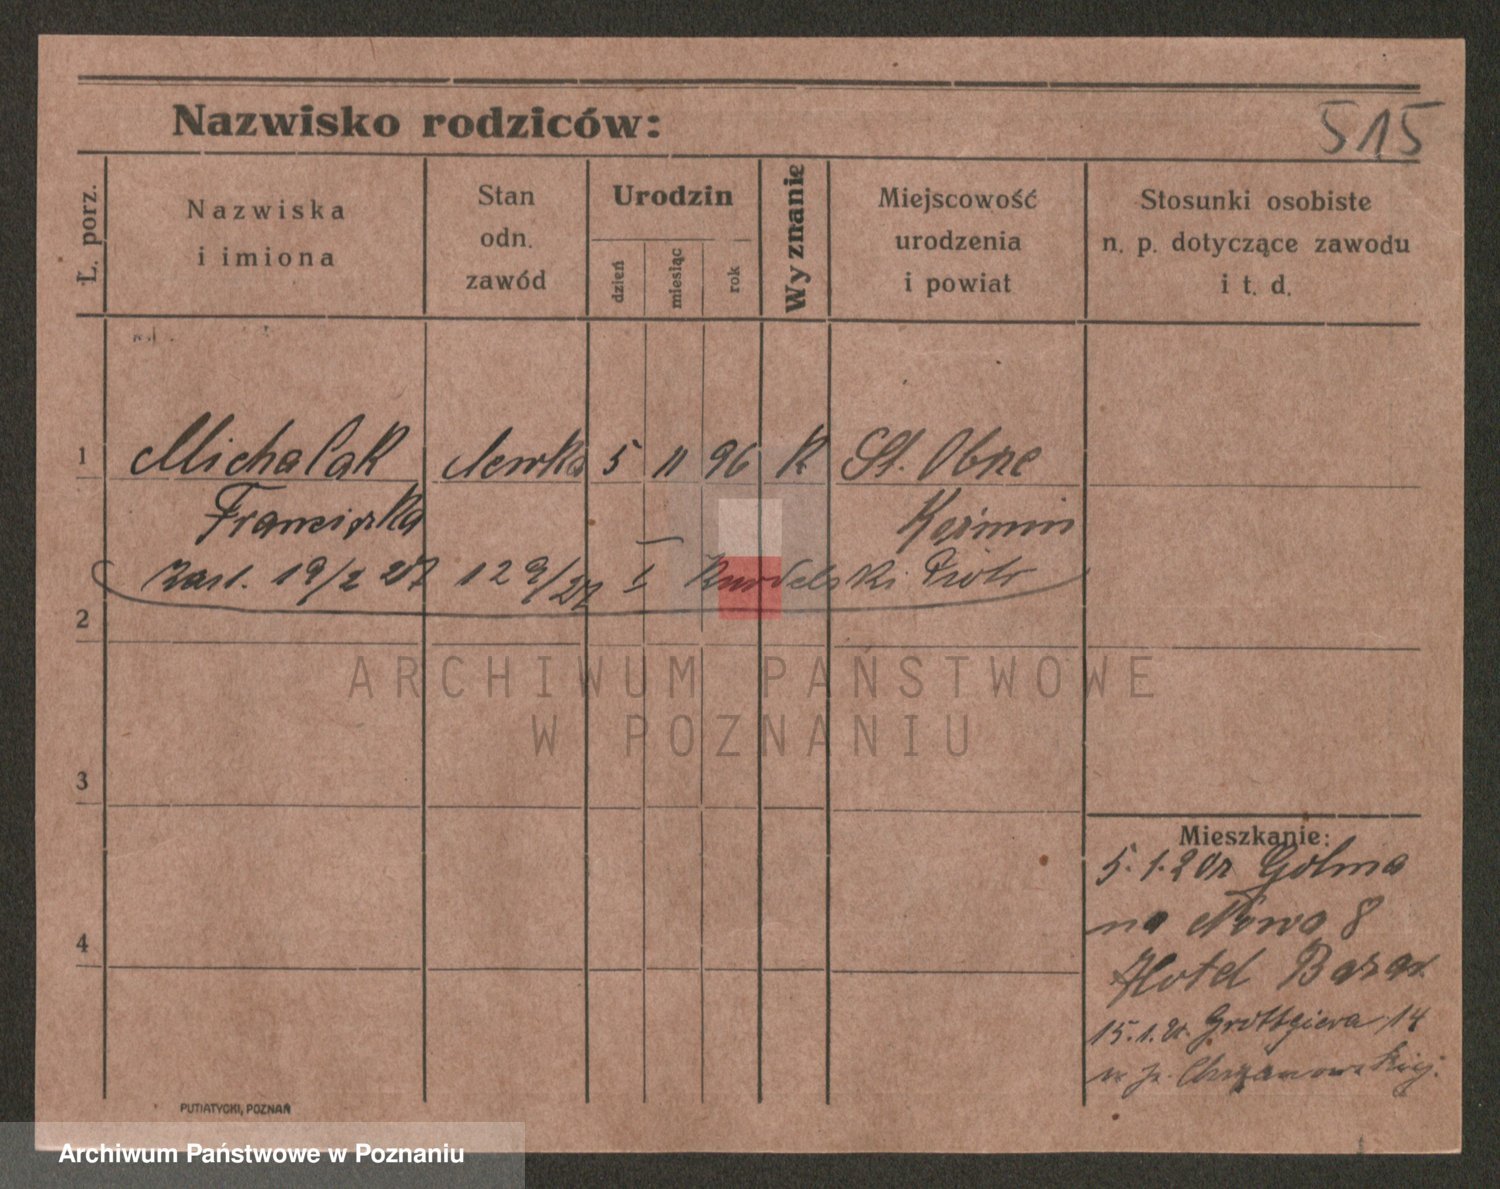 Nazwisko rodziców:
515
L. porz.
Nazwiska
i imiona
Stan
odn.
zawód
Urodzin
dzień
miesiąc
rok
Wyznanie
Miejscowość
urodzenia
i powiat
Stosunki osobiste
n. p. dotyczące zawodu
i t. d.
1 Michalak 5 11 96 K St. Obrze
Franciszka
19/2 27 129/27 Piotr
2
ARCHIWUM PAŃSTWOWE
W POZNANIU
3
Mieszkanie:
5.1.20r
na Nowa 8
4
Hotel Bazar
15.1.21. Grottgiera 14
PUTIATYCKI, POZNAŃ
Archiwum Państwowe w Poznaniu